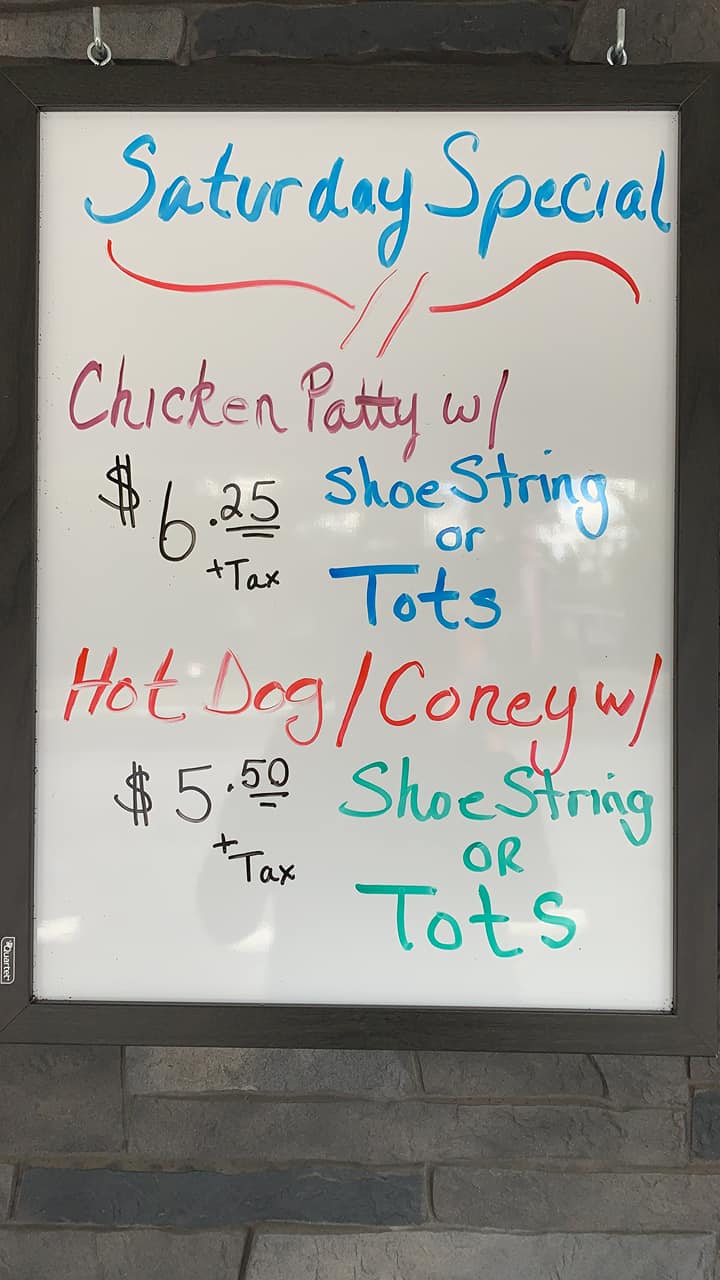 Saturday Special
Chicken Patty w/
$6.25 ShoeString
or
+Tax Tots
Hot Dog/Coney w/
$5.50 ShoeString
+Tax OR
Tots
Quartet